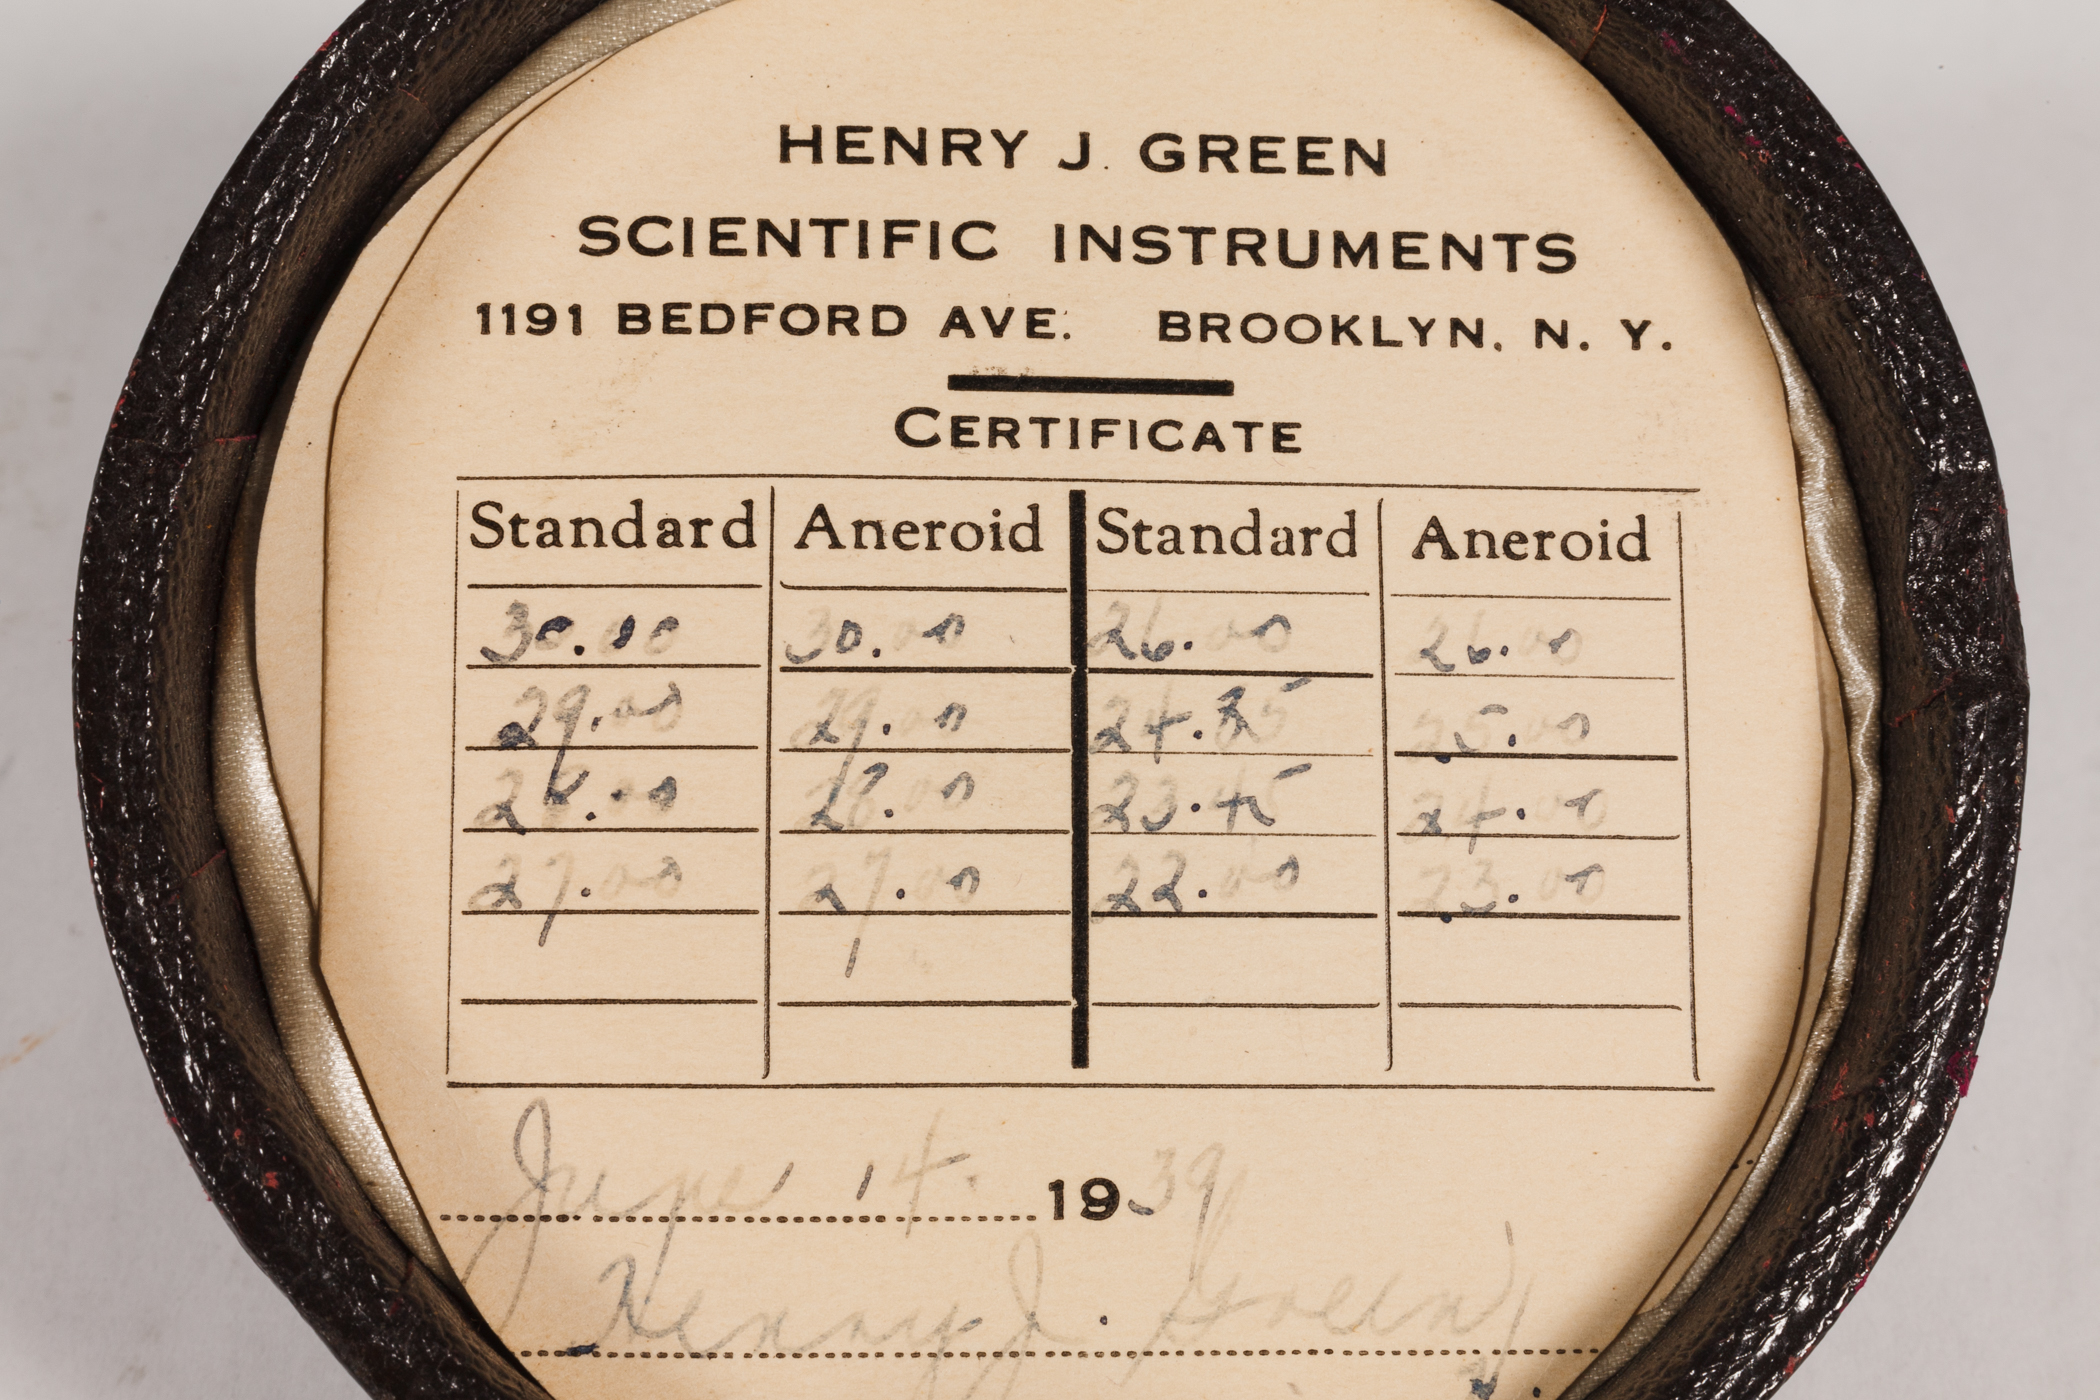 HENRY J. GREEN
SCIENTIFIC INSTRUMENTS
1191 BEDFORD AVE. BROOKLYN, N. Y.
CERTIFICATE
Standard Aneroid Standard Aneroid
30.00 30.00 26.00 26.00
29.00 29.00 24.85 25.00
28.00 28.00 23.45 24.00
27.00 27.00 22.00 23.00
June 14. 1939
Henry J. Green